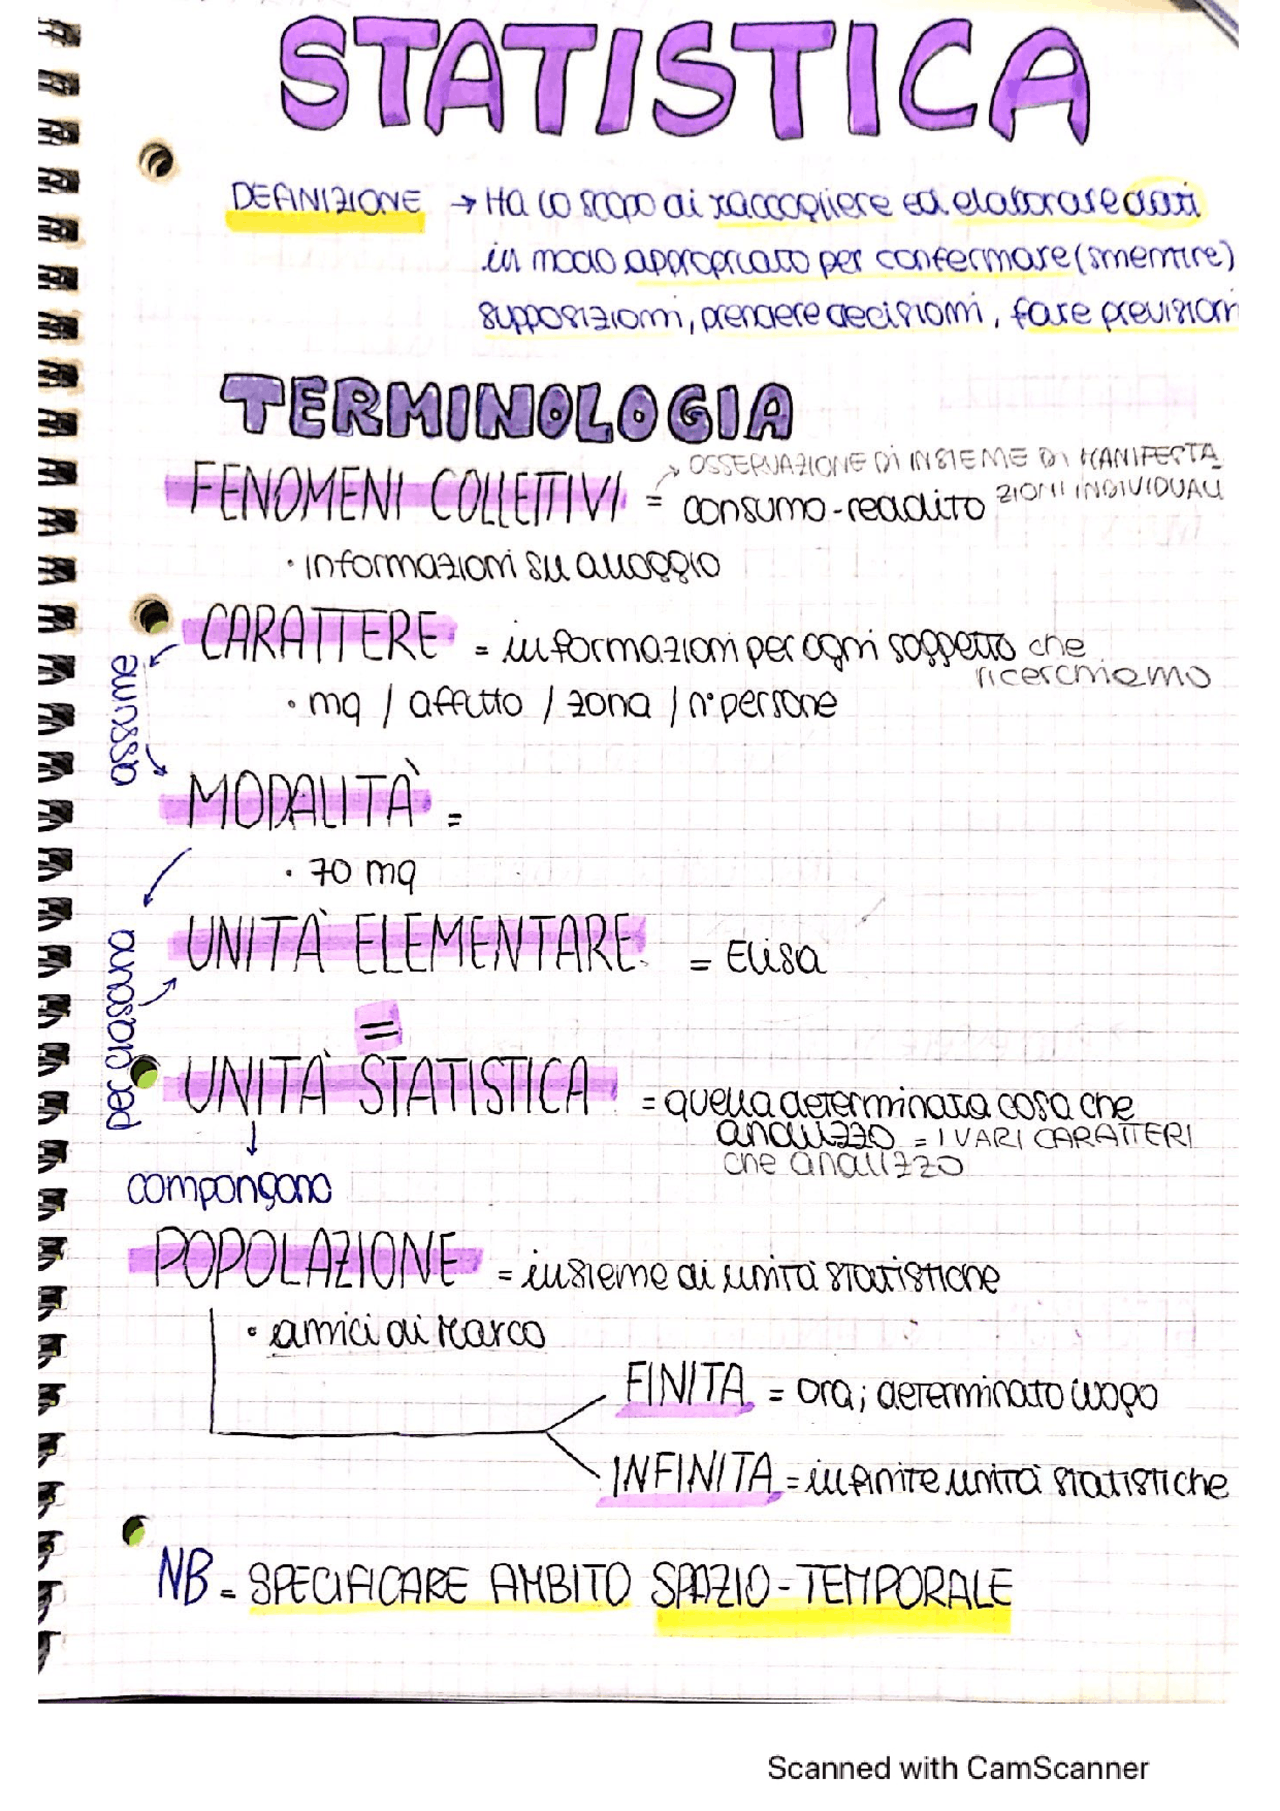 STATISTICA
DEFINIZIONE → Ha lo scopo di raccogliere ed elaborare dati
in modo appropriato per confermare (smentire)
supposizioni, prendere decisioni, fare previsioni
TERMINOLOGIA
→ OSSERVAZIONE DI INSIEME DI MANIFESTA
ZIONI INDIVIDUALI
FENOMENI COLLETTIVI = consumo-reddito
• informazioni su alloggio
CARATTERE = informazioni per ogni soggetto che
ricerchiamo
• mq / affitto / zona / n° persone
assume
MODALITÀ =
• 70 mq
UNITÀ ELEMENTARE = Elisa
per ciascuna
=
UNITÀ STATISTICA = quella determinata cosa che
analizzo = I VARI CARATTERI
che analizzo
compongono
POPOLAZIONE = insieme di unità statistiche
• amici di Marco
FINITA = ora; determinato luogo
INFINITA = infinite unità statistiche
NB = SPECIFICARE AMBITO SPAZIO-TEMPORALE
Scanned with CamScanner